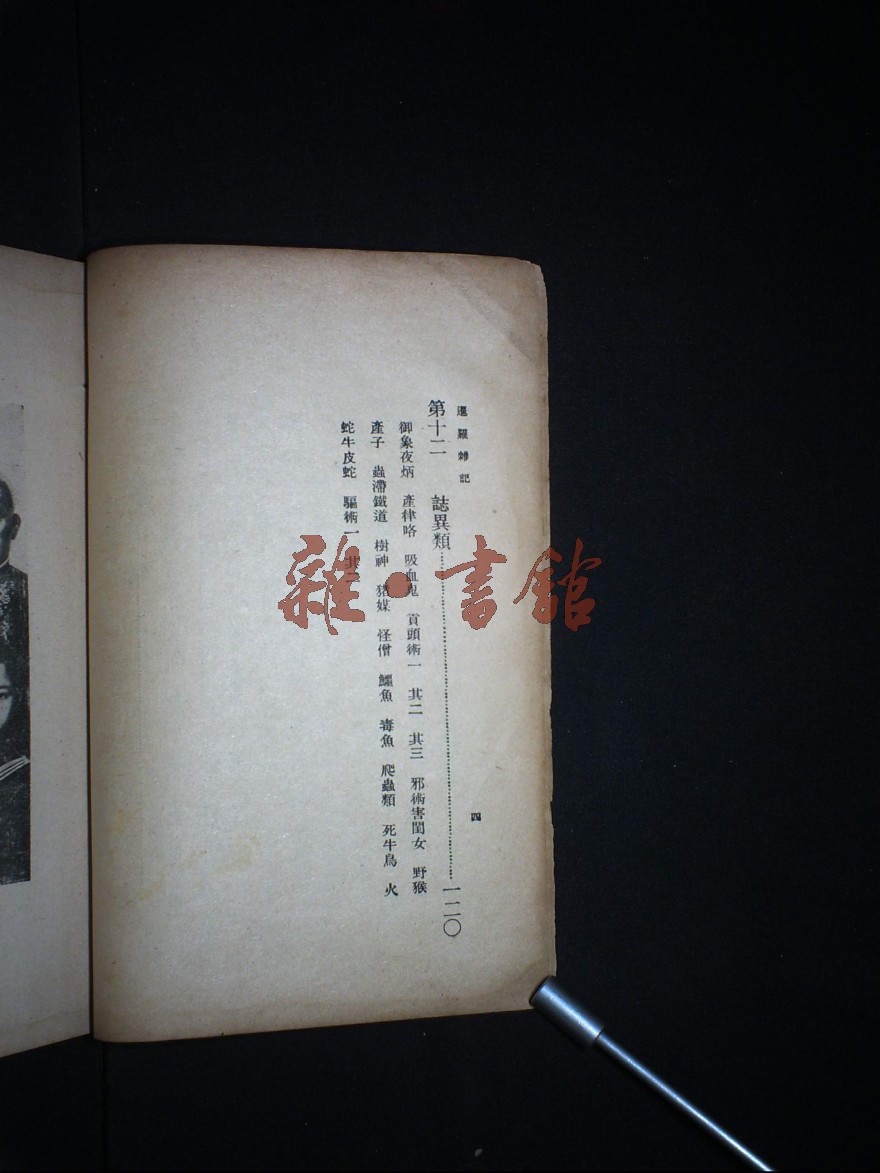 暹羅雜記
四
第十二 誌異類……一二〇
御象夜炳 產律咯 吸血鬼 貢頭術一 其二 其三 邪術害閨女 野猴
產子 蟲滯鐵道 樹神 豬媒 怪僧 鱷魚 毒魚 爬蟲類 死牛鳥 火
蛇牛皮蛇 驅術一 其二
雜·書館